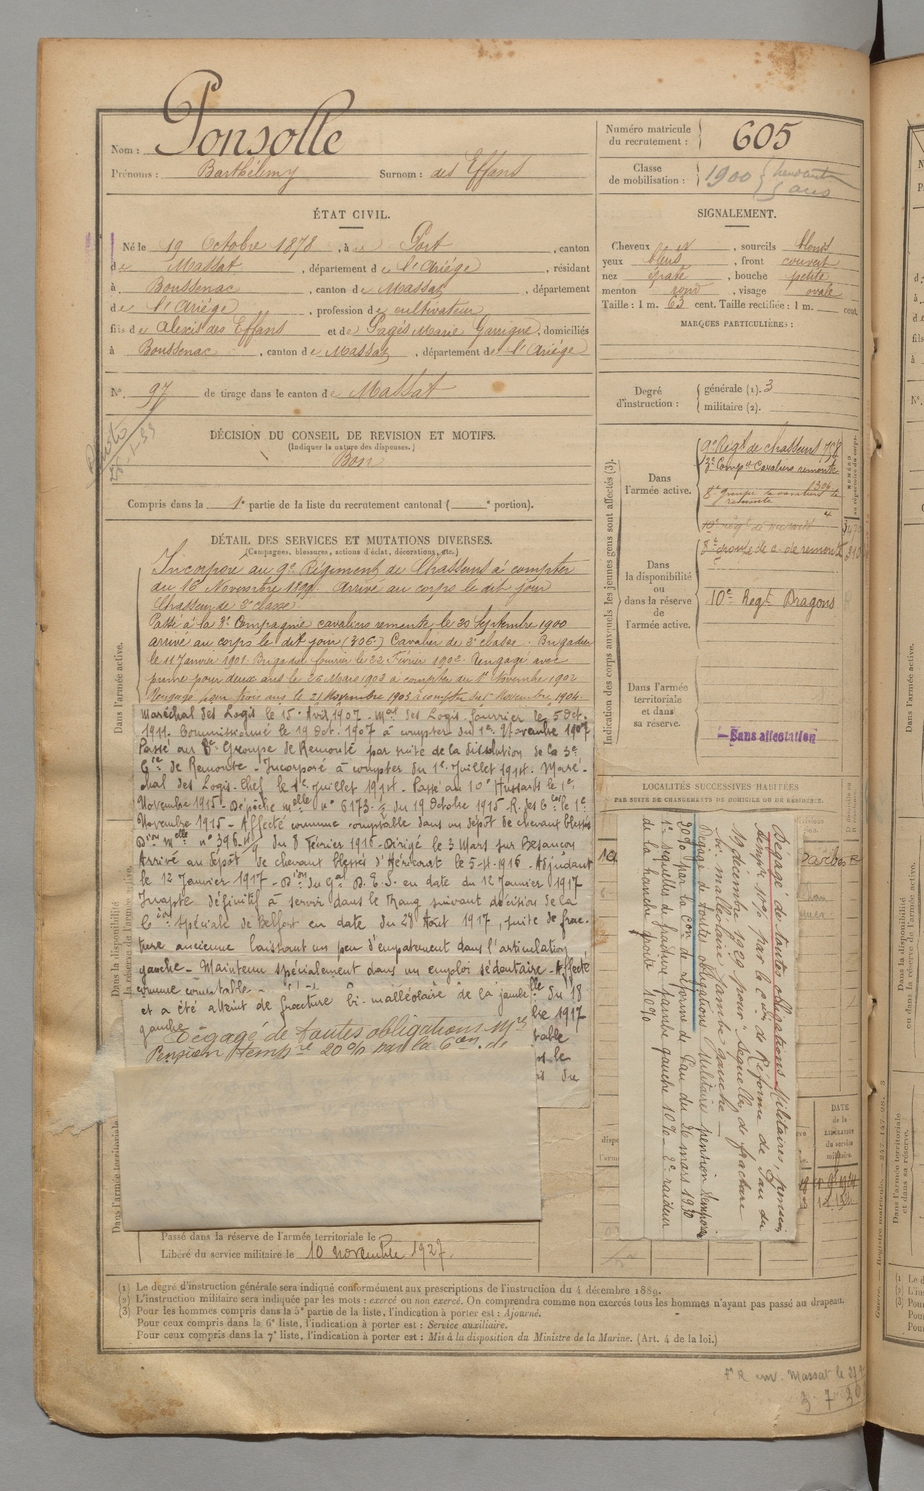 Nom : Ponsolle
Prénoms : Barthélémy Surnom : des Effans
Numéro matricule du recrutement : 605
Classe de mobilisation : 1900
ÉTAT CIVIL.
Né le 19 Octobre 1878, à Port, canton
de Massat, département de l'Ariège, résidant
à Boussenac, canton de Massat, département
de l'Ariège, profession de cultivateur
fils de Alexis des Effans et de Pagès Marie Garrigue, domiciliés
à Boussenac, canton de Massat, département de l'Ariège
N° 97 de tirage dans le canton de Massat
DÉCISION DU CONSEIL DE REVISION ET MOTIFS.
(Indiquer la nature des dispenses.)
Bon
Compris dans la 1e partie de la liste du recrutement cantonal ( e portion).
SIGNALEMENT.
Cheveux , sourcils blonds
yeux bleus, front couvert
nez épaté, bouche petite
menton rond, visage ovale
Taille : 1 m. 63 cent. Taille rectifiée : 1 m. cent.
MARQUES PARTICULIÈRES :
Degré d'instruction : générale (1). 3
militaire (2).
Indication des corps auxquels les jeunes gens sont affectés (3).
Dans l'armée active.
9e Régt de chasseurs
3e Compie Cavaliers remonte
8e groupe de cavaliers de remonte
Dans la disponibilité ou dans la réserve de l'armée active.
10e Régt Dragons
Dans l'armée territoriale et dans sa réserve.
Sans affectation
DÉTAIL DES SERVICES ET MUTATIONS DIVERSES.
(Campagnes, blessures, actions d'éclat, décorations, etc.)
Dans l'armée active.
Incorporé au 9e Régiment de Chasseurs à compter
du 16 Novembre 1899. Arrivé au corps le dit jour
Chasseur de 2e classe.
Passé à la 3e Compagnie cavaliers remonte le 20 Septembre 1900
arrivé au corps le dit jour (306) Cavalier de 2e classe - Brigadier
le 11 Janvier 1901. Brigadier fourrier le 22 Février 1902. Rengagé avec
prime pour deux ans le 26 Mars 1902 à compter du 1er Novembre 1902
Rengagé pour trois ans le 21 Novembre 1903 à compter du 1er Novembre 1904.
Maréchal des Logis le 15 Avril 1907 - Mal des Logis fourrier le 5 Oct.
1911. Commissionné le 19 Oct. 1907 à compter du 1er Novembre 1907
Passé au 8e Groupe de Remonte par suite de la dissolution de la 3e
Cie de Remonte - Incorporé à compter du 1er Juillet 1914. Maré-
chal des Logis-Chef le 1er Juillet 1914 - Passé au 10e Hussards le 1er
Novembre 1915 - Dépêche melle n° 6173 du 19 Octobre 1915
Novembre 1915 - Affecté comme comptable dans un dépôt de chevaux blessés
Don melle n° 396 du 8 Février 1916 - Dirigé le 3 Mars sur Besançon
Arrivé au dépôt de chevaux blessés d'Héricourt le 5-4-1916 - Adjudant
le 12 Janvier 1917 - Don du Gal D.E.S. en date du 12 Janvier 1917
Inapte définitif à servir dans le rang suivant décision de la
Con spéciale de Belfort en date du 28 Août 1917, suite de frac-
ture ancienne laissant un peu d'empatement dans l'articulation
gauche - Maintenu spécialement dans un emploi sédentaire - Affecté
comme comptable -
et a été atteint de fracture bi-malléolaire de la jambe
gauche
Dégagé de toutes obligations Mres
Pension Tempre 20% par la Con de
Passé dans la réserve de l'armée territoriale le
Libéré du service militaire le 10 novembre 1927.
LOCALITÉS SUCCESSIVES HABITÉES
PAR SUITE DE CHANGEMENTS DE DOMICILE OU DE RÉSIDENCE.
Dégagé de toutes obligations Militaires, pension
tempre 10% par la Con de Réforme de Pau du
19 décembre 1929 pour : séquelles de fracture
bi-malléolaire jambe gauche -
Dégagé de toutes obligations Militaires pension temporaire
20% par la Con de réforme de Pau du 26 mars 1930
1° séquelles de fracture jambe gauche 10% - 2° raideur
de la hanche droite 10%
DATE de la LIBÉRATION du service militaire.
(1) Le degré d'instruction générale sera indiqué conformément aux prescriptions de l'instruction du 4 décembre 1889.
(2) L'instruction militaire sera indiquée par les mots : exercé ou non exercé. On comprendra comme non exercés tous les hommes n'ayant pas passé au drapeau.
(3) Pour les hommes compris dans la 5e partie de la liste, l'indication à porter est : Ajourné.
Pour ceux compris dans la 6e liste, l'indication à porter est : Service auxiliaire.
Pour ceux compris dans la 7e liste, l'indication à porter est : Mis à la disposition du Ministre de la Marine. (Art. 4 de la loi.)